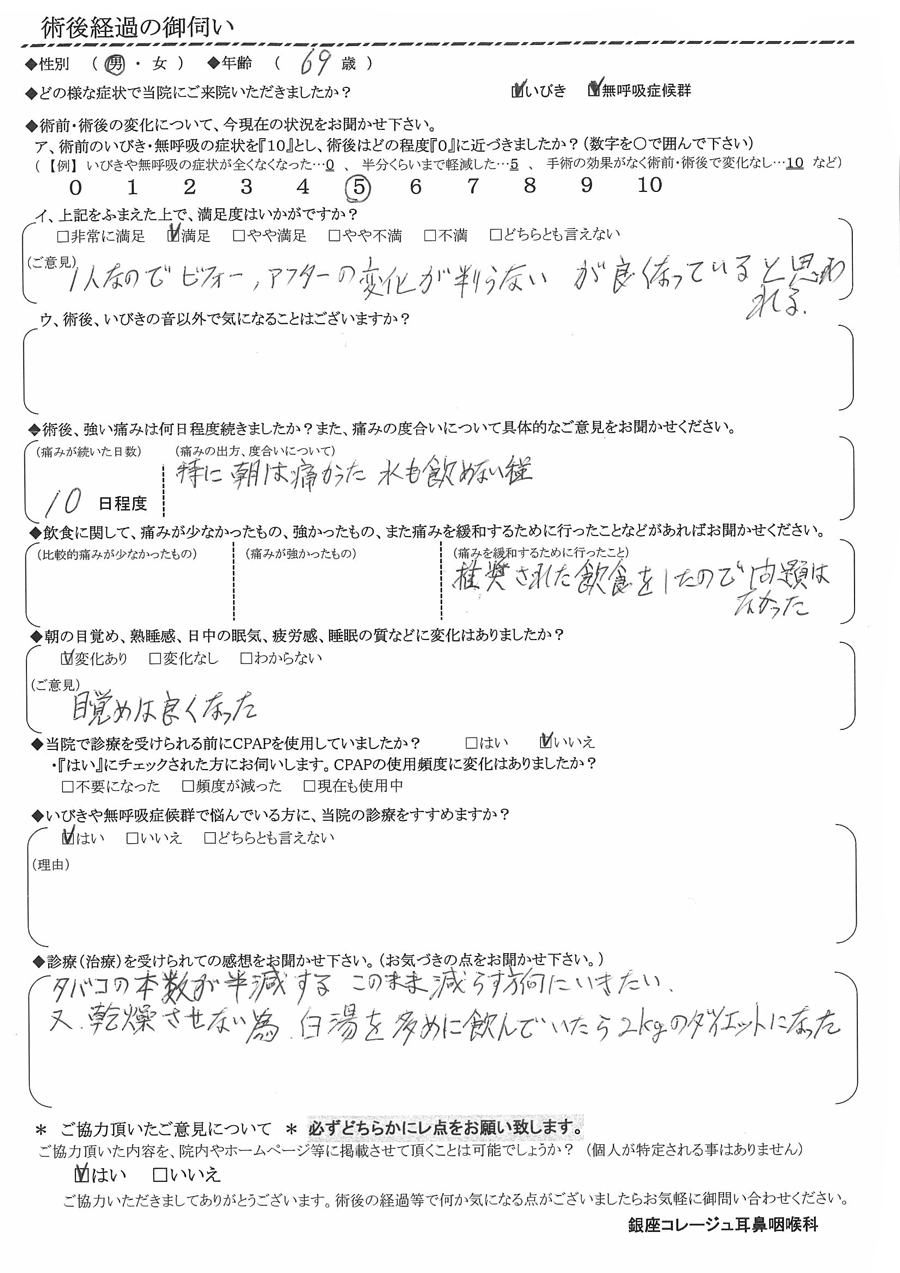 術後経過の御伺い
◆性別 ( 男 ・ 女 ) ◆年齢 ( 69 歳 )
◆どの様な症状で当院にご来院いただきましたか? ☑いびき ☑無呼吸症候群
◆術前・術後の変化について、今現在の状況をお聞かせ下さい。
ア、術前のいびき・無呼吸の症状を『10』とし、術後はどの程度『0』に近づきましたか?(数字を○で囲んで下さい)
(【例】いびきや無呼吸の症状が全くなくなった…0 、 半分くらいまで軽減した…5 、 手術の効果がなく術前・術後で変化なし…10 など)
0 1 2 3 4 ⑤ 6 7 8 9 10
イ、上記をふまえた上で、満足度はいかがですか?
□非常に満足 ☑満足 □やや満足 □やや不満 □不満 □どちらとも言えない
(ご意見) 1人なので ビフォー,アフターの変化が判らない が良くなっていると思わ
れる.
ウ、術後、いびきの音以外で気になることはございますか?
◆術後、強い痛みは何日程度続きましたか?また、痛みの度合いについて具体的なご意見をお聞かせください。
(痛みが続いた日数) (痛みの出方、度合いについて)
特に朝は痛かった 水も飲めない程
10 日程度
◆飲食に関して、痛みが少なかったもの、強かったもの、また痛みを緩和するために行ったことなどがあればお聞かせください。
(比較的痛みが少なかったもの) (痛みが強かったもの) (痛みを緩和するために行ったこと)
推奨された飲食をしたので問題は
なかった
◆朝の目覚め、熟睡感、日中の眠気、疲労感、睡眠の質などに変化はありましたか?
☑変化あり □変化なし □わからない
(ご意見)
目覚めは良くなった
◆当院で診療を受けられる前にCPAPを使用していましたか? □はい ☑いいえ
・『はい』にチェックされた方にお伺いします。CPAPの使用頻度に変化はありましたか?
□不要になった □頻度が減った □現在も使用中
◆いびきや無呼吸症候群で悩んでいる方に、当院の診療をすすめますか?
☑はい □いいえ □どちらとも言えない
(理由)
◆診療(治療)を受けられての感想をお聞かせ下さい。(お気づきの点をお聞かせ下さい。)
タバコの本数が半減する このまま減らす方向にいきたい.
又.乾燥させない為.白湯を多めに飲んでいたら2kgのダイエットになった
* ご協力頂いたご意見について * 必ずどちらかにレ点をお願い致します。
ご協力頂いた内容を、院内やホームページ等に掲載させて頂くことは可能でしょうか? (個人が特定される事はありません)
☑はい □いいえ
ご協力いただきましてありがとうございます。術後の経過等で何か気になる点がございましたらお気軽に御問い合わせください。
銀座コレージュ耳鼻咽喉科